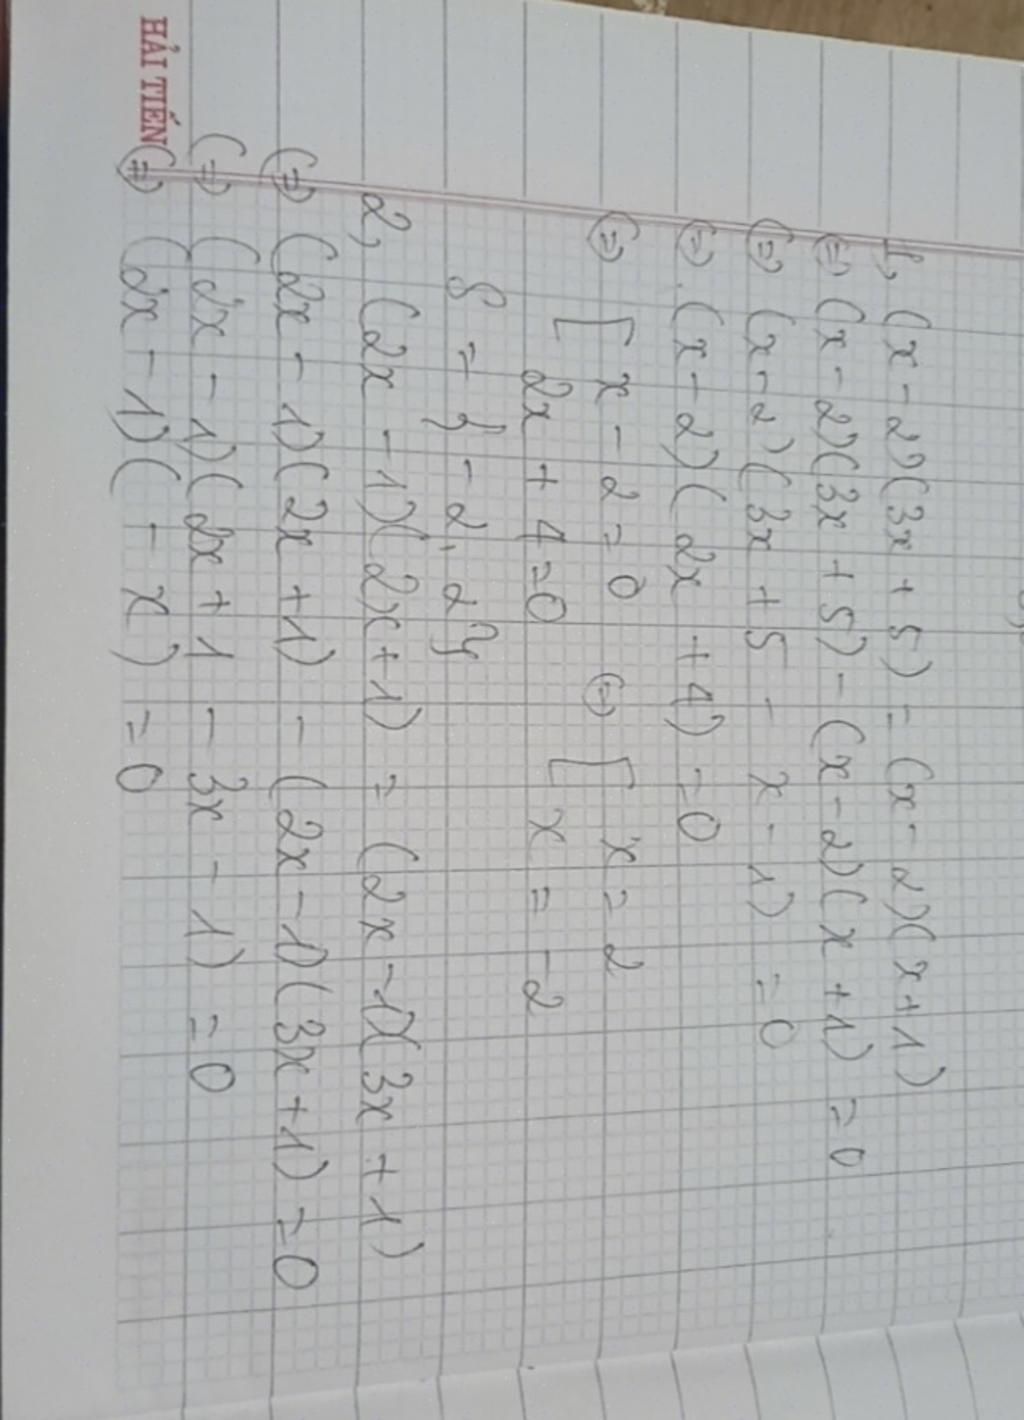 1, (x - 2)(3x + 5) = (x - 2)(x + 1)
(=) (x - 2)(3x + 5) - (x - 2)(x + 1) = 0
(=) (x - 2)(3x + 5 - x - 1) = 0
(=) (x - 2)(2x + 4) = 0
(=) [ x - 2 = 0 (=) [ x = 2
2x + 4 = 0 x = -2
S = { -2, 2 }
2, (2x - 1)(2x + 1) = (2x - 1)(3x + 1)
(=) (2x - 1)(2x + 1) - (2x - 1)(3x + 1) = 0
(=) (2x - 1)(2x + 1 - 3x - 1) = 0
(=) (2x - 1)( - x) = 0
HẢI TIẾN